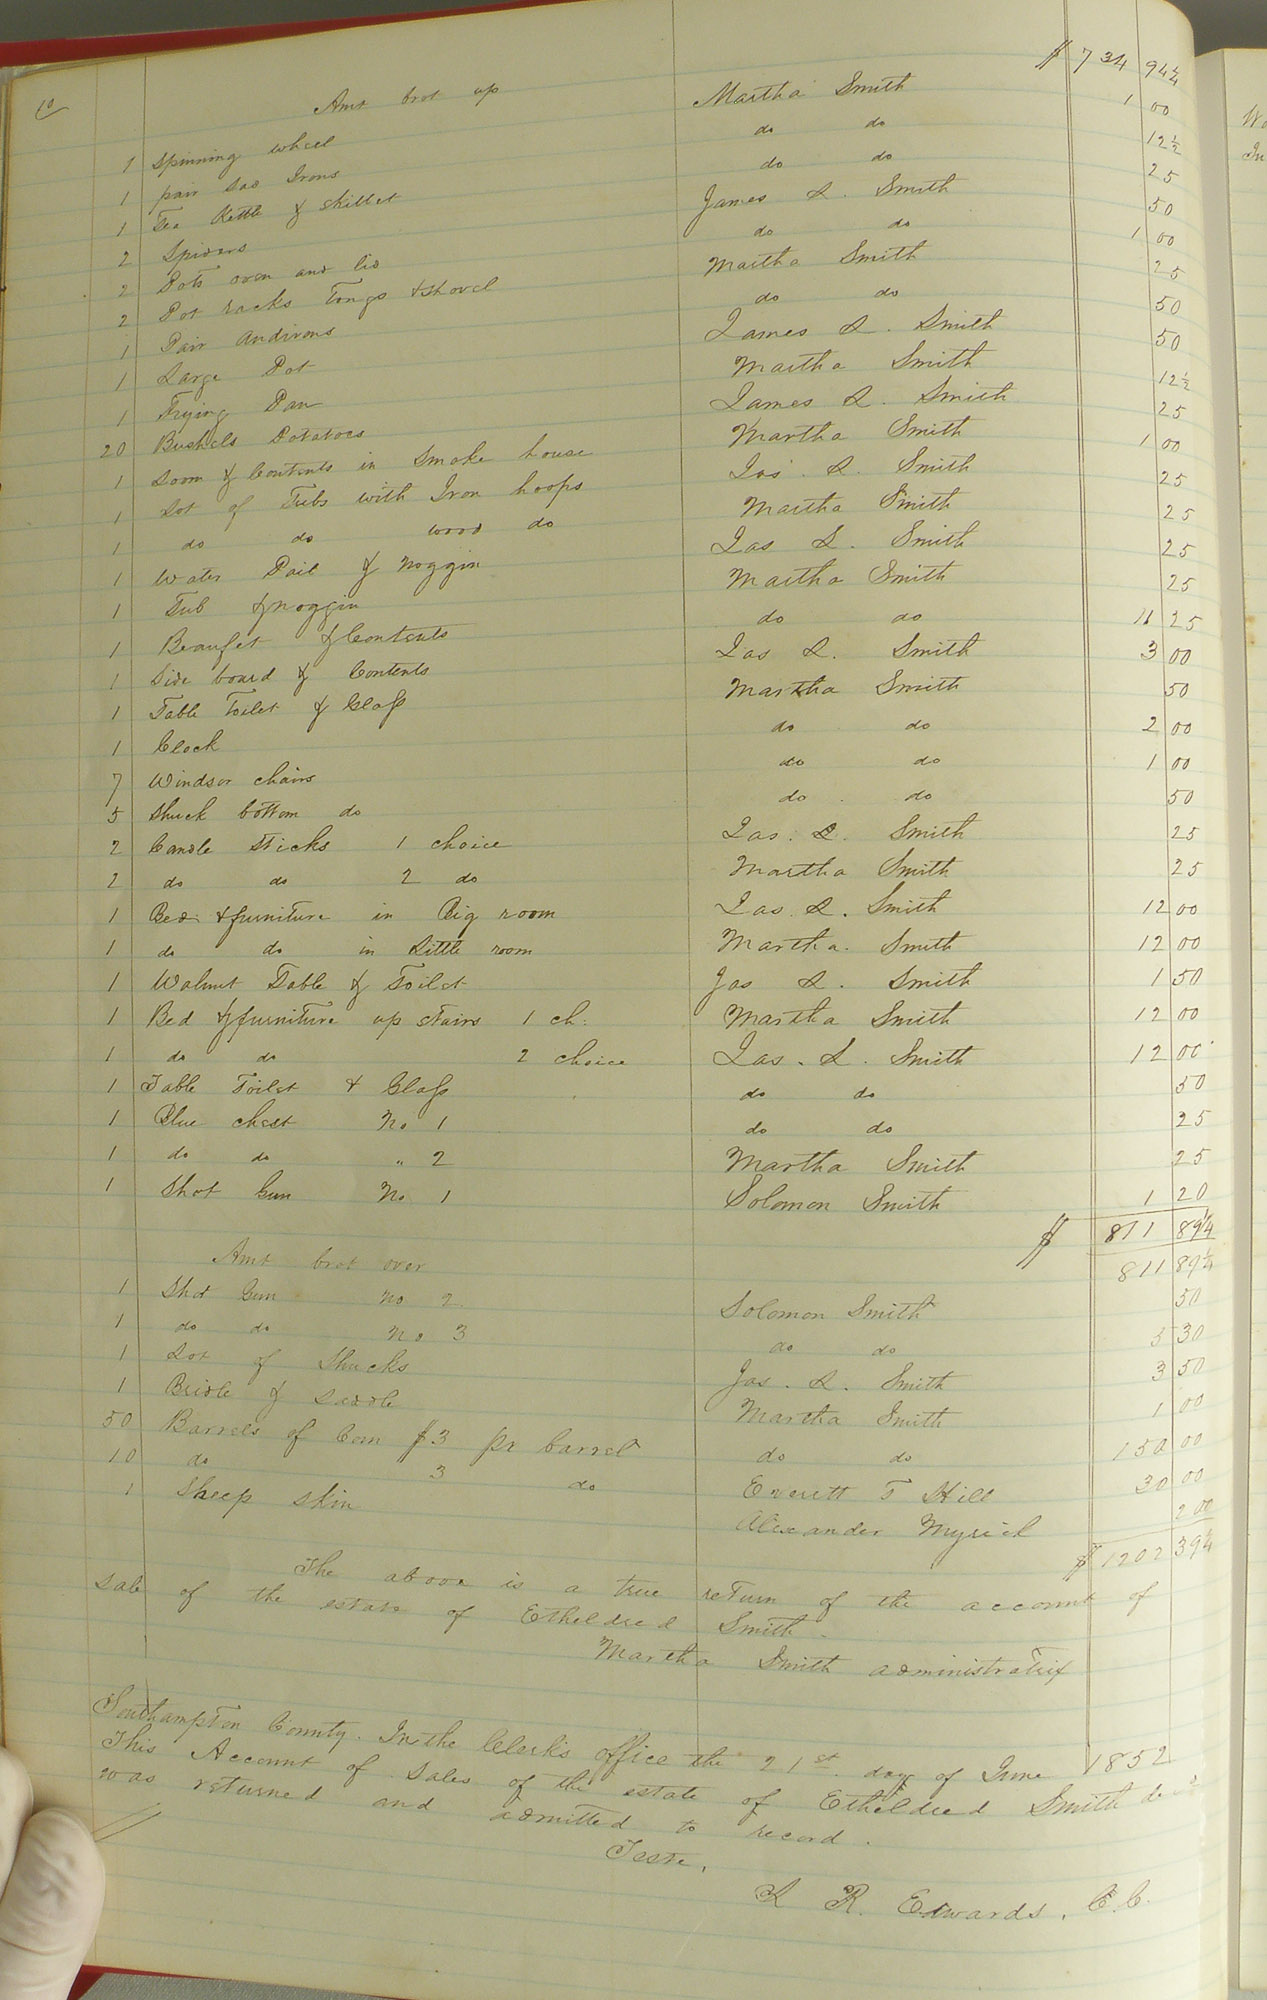 10
Amt brot up $ 734 94 1/4
1 Spinning wheel Martha Smith 1 00
1 pair Sad Irons do do 12 1/2
1 Tea Kettle & Skillet do do 25
2 Spiders James L. Smith 50
2 Pots oven and lid do do 1 00
2 Pot racks Tongs & Shovel Martha Smith 25
1 Pair Andirons do do 50
1 Large Pot James L. Smith 50
1 Frying Pan Martha Smith 12 1/2
20 Bushels Potatoes James L. Smith 25
1 Loom & Contents in Smoke house Martha Smith 1 00
1 Lot of Tubs with Iron hoops Jas. L. Smith 25
1 do do wood do Martha Smith 25
1 Water Pail & Noggin Jas L. Smith 25
1 Tub & Noggin Martha Smith 25
1 Beaufet & Contents do do 11 25
1 Side board & Contents Jas L. Smith 3 00
1 Table Toilet & Glass Martha Smith 50
1 Clock do do 2 00
7 Windsor chairs do do 1 00
5 Shuck bottom do do do 50
2 Candle Sticks 1 choice Jas. L. Smith 25
2 do do 2 do Martha Smith 25
1 Bed & furniture in Big room Jas. L. Smith 12 00
1 do do in Little room Martha. Smith 12 00
1 Walnut Table & Toilet Jas L. Smith 1 50
1 Bed & furniture up stairs 1 ch: Martha Smith 12 00
1 do do 2 choice Jas. L. Smith 12 00
1 Table Toilet & Glass do do 50
1 Blue chest No 1 do do 25
1 do do " 2 Martha Smith 25
1 Shot Gun No 1 Solomon Smith 1 20
$ 811 89 1/4
Amt brot over 811 89 1/4
1 Shot Gun No 2 Solomon Smith 50
1 do do No 3 do do 5 30
1 Lot of Shucks Jas. L. Smith 3 50
1 Bridle & Saddle Martha Smith 1 00
50 Barrels of Corn $3 pr barrel do do 150 00
10 do 3 do Everett T Hill 30 00
1 Sheep skin Alexander Myrick 2 00
$ 1202 39 1/4
The above is a true return of the account of
Sale of the estate of Etheldred Smith.
Martha Smith administratrix
Southampton County. In the Clerk's office the 21st day of June 1852
This Account of Sales of the estate of Etheldred Smith decd
was returned and admitted to record.
Teste,
L R. Edwards, C. C.